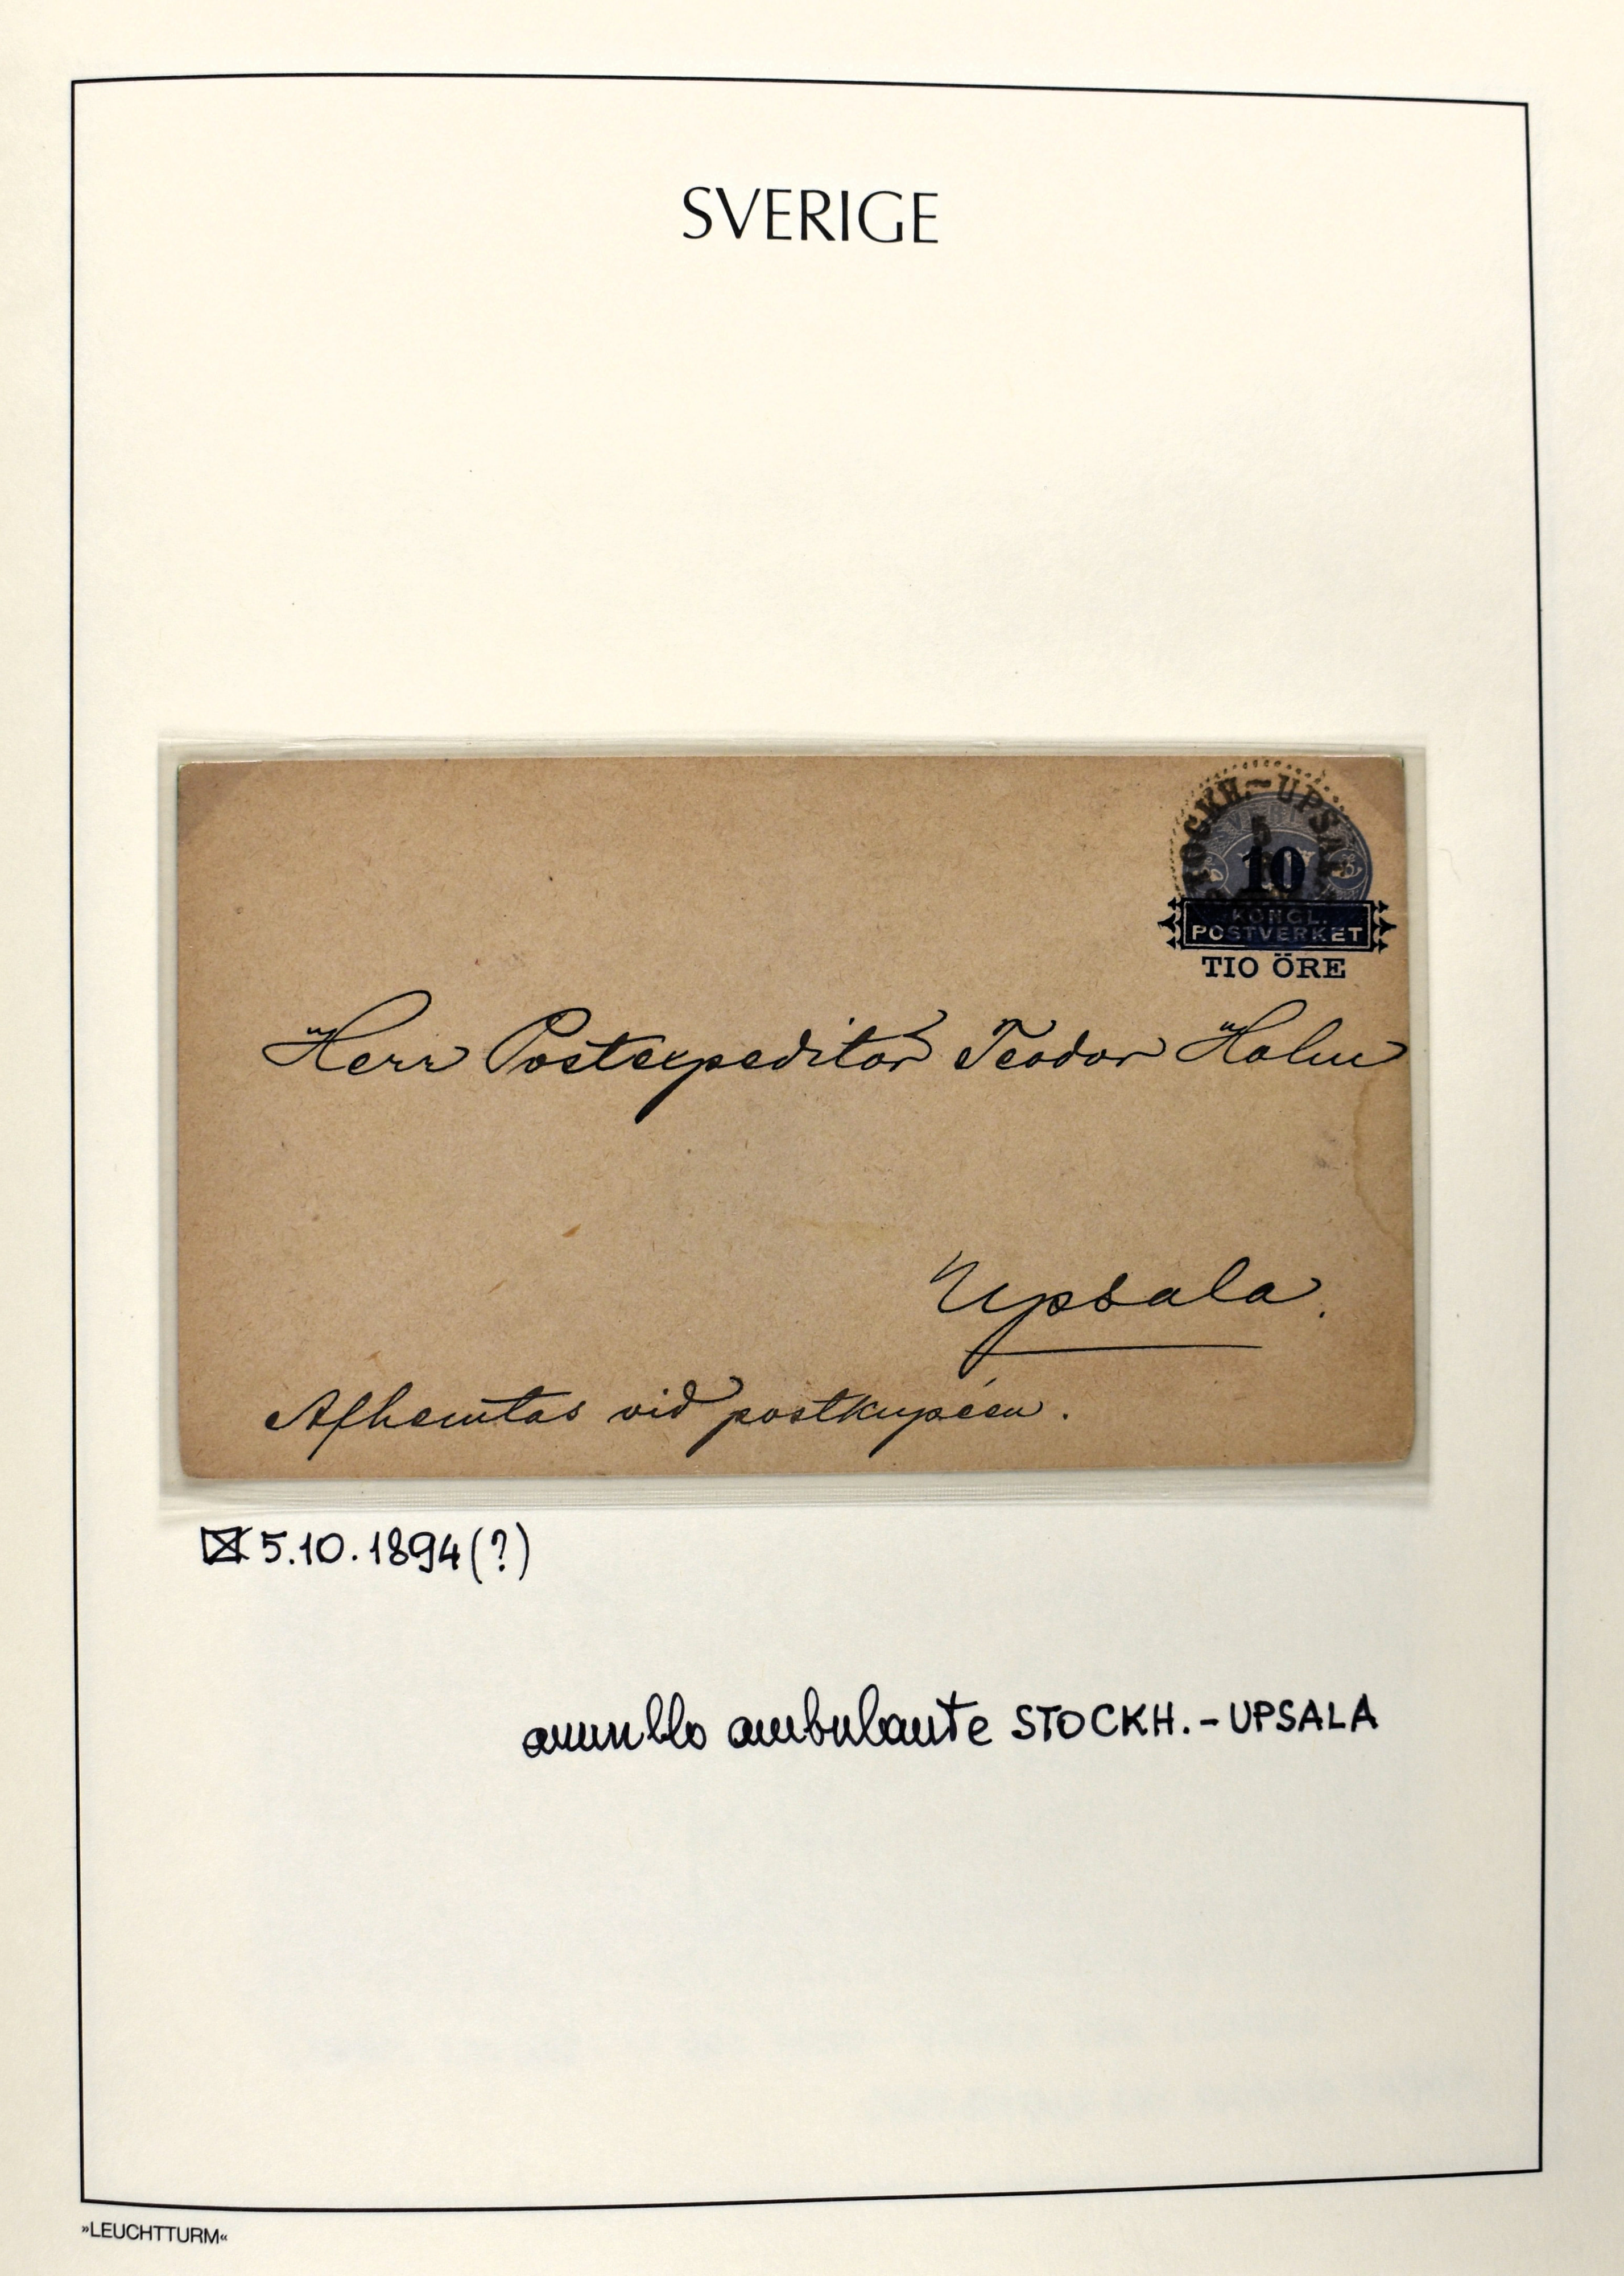 SVERIGE
STOCKH.-UPSALA
5
10
KONGL.
POSTVERKET
TIO ÖRE
Herr Postexpeditör Teodor Holm
Upsala.
Afhemtas vid postkupéen.
5.10.1894(?)
annullo ambulante STOCKH.-UPSALA
»LEUCHTTURM«